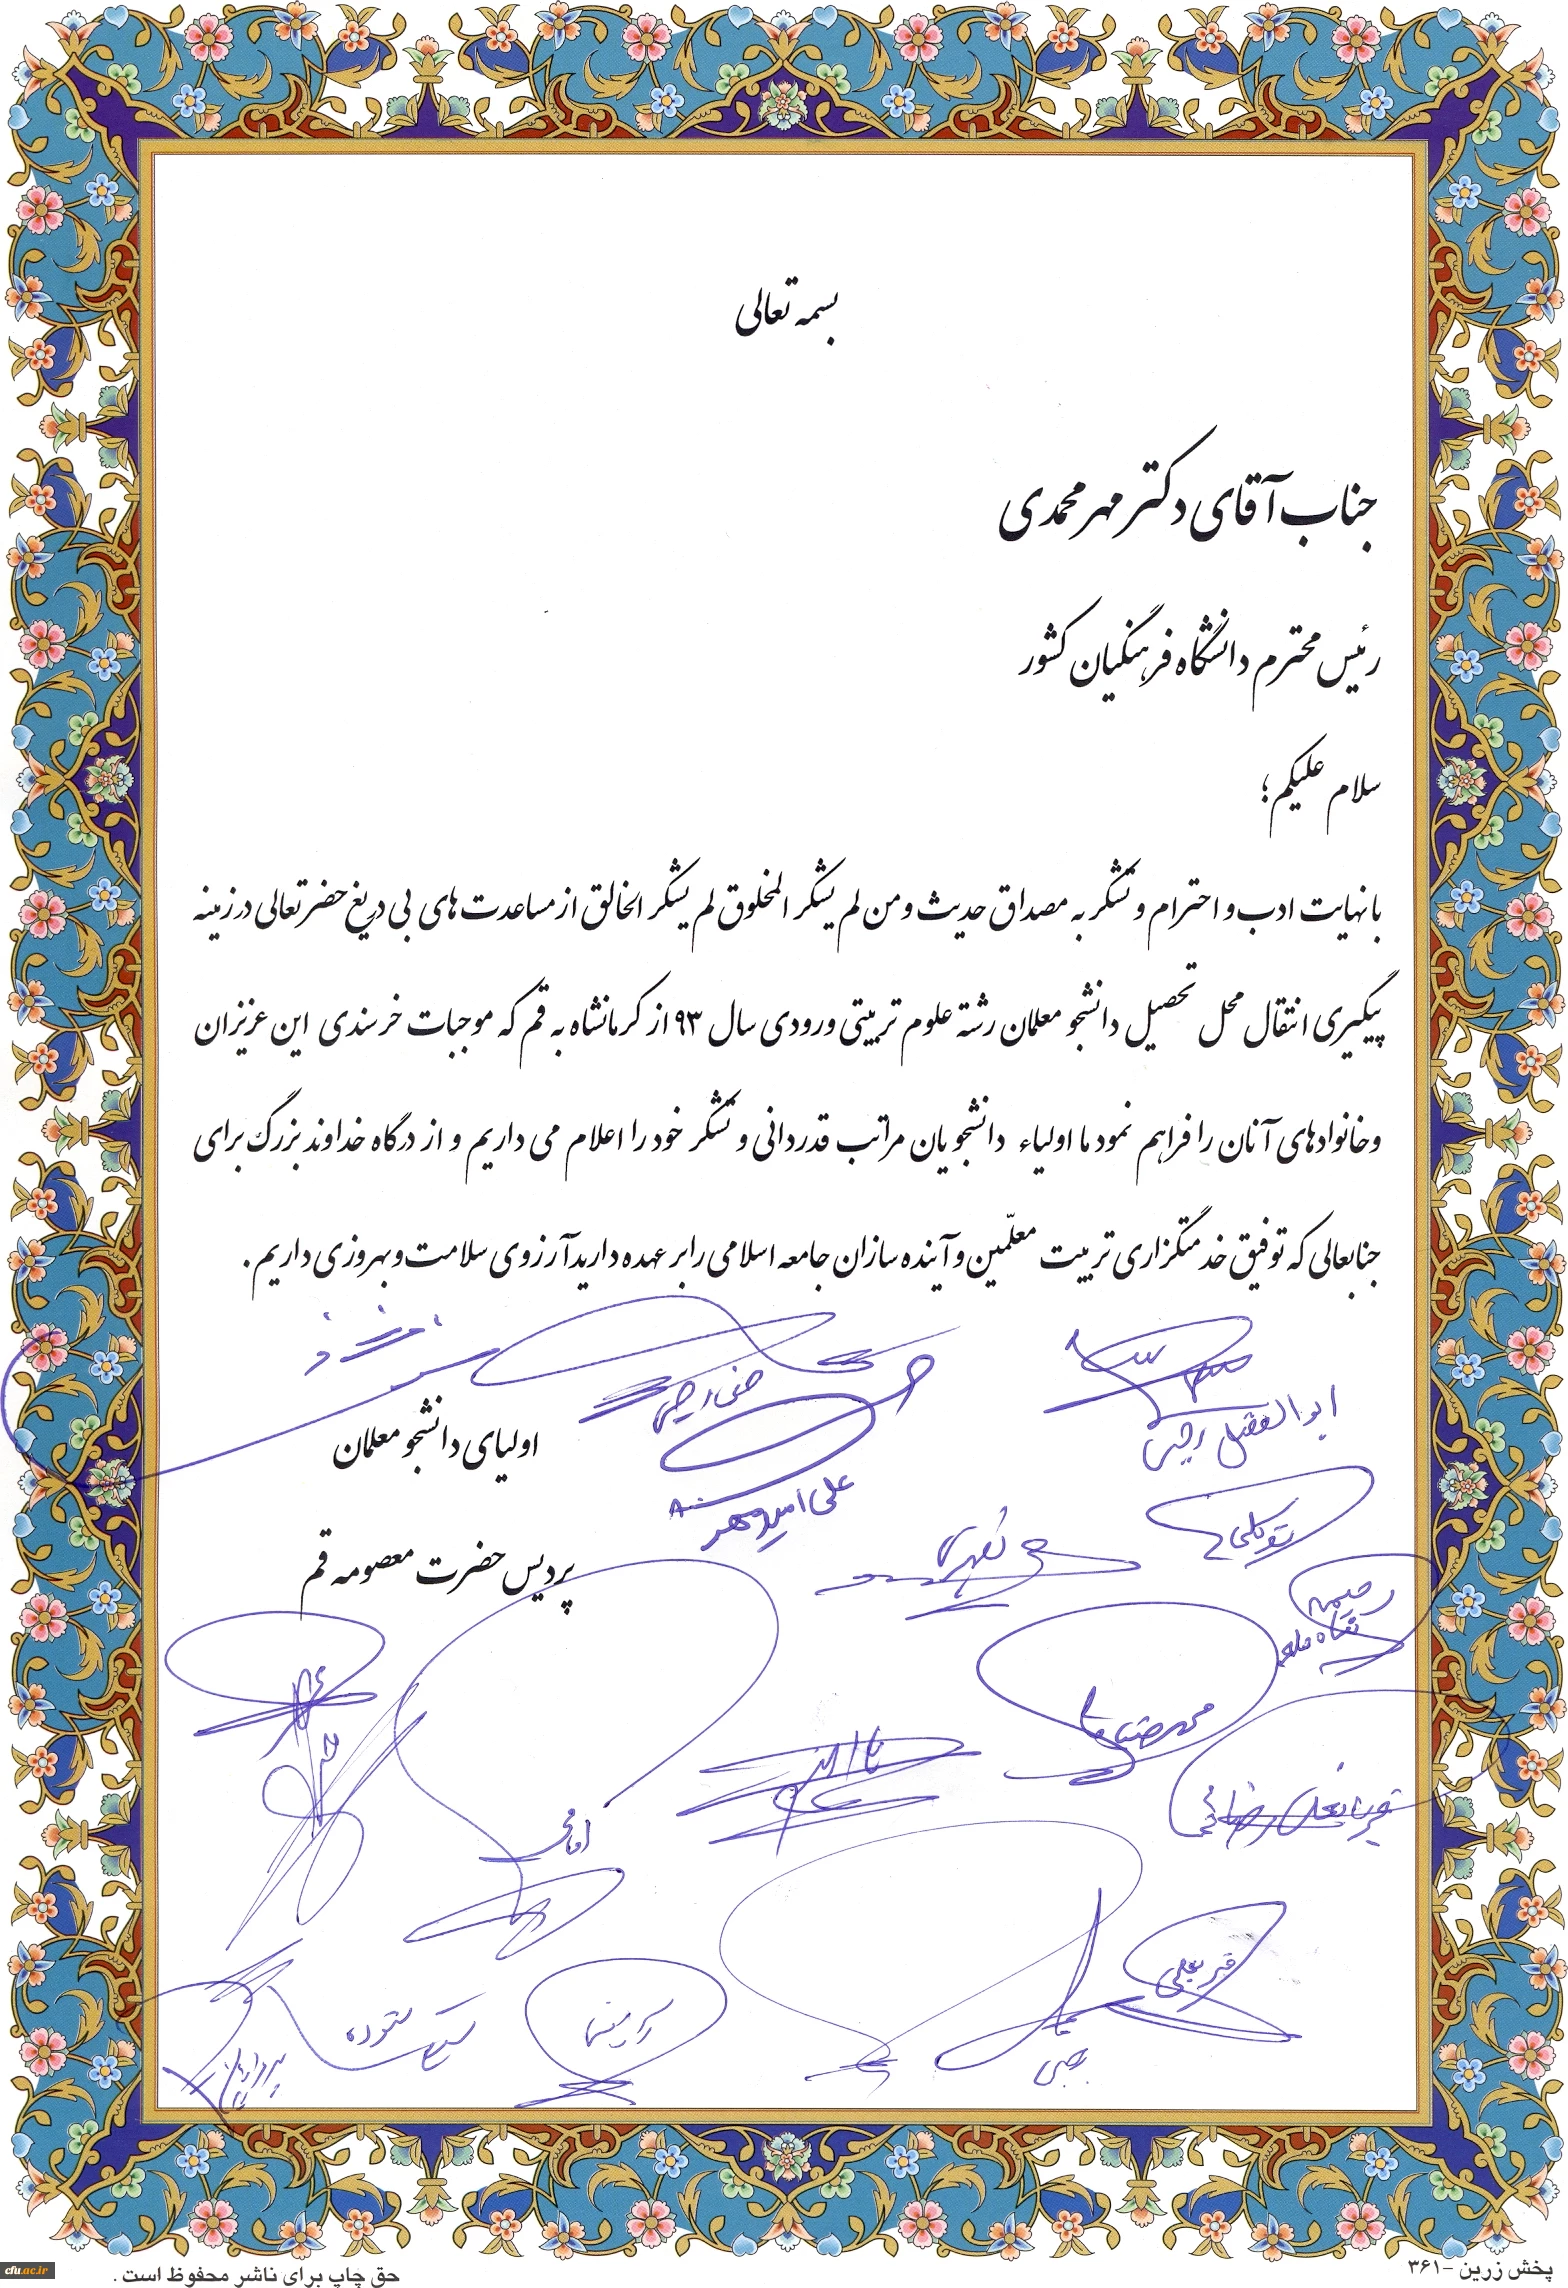 بسمه تعالی
جناب آقای دکتر مهر محمدی
رئیس محترم دانشگاه فرهنگیان کشور
سلام علیکم؛
با نهایت ادب و احترام و تشکر به مصداق حدیث و من لم یشکر المخلوق لم یشکر الخالق از مساعدت های بی دریغ حضرتعالی در زمینه
پیگیری انتقال محل تحصیل دانشجو معلمان رشته علوم تربیتی ورودی سال ۹۳ از کرمانشاه به قم که موجبات خرسندی این عزیزان
و خانوادهای آنان را فراهم نمود ما اولیاء دانشجویان مراتب قدردانی و تشکر خود را اعلام می داریم و از درگاه خداوند بزرگ برای
جنابعالی که توفیق خدمتگزاری تربیت معلّمین و آینده سازان جامعه اسلامی را بر عهده دارید آرزوی سلامت و بهروزی داریم.
اولیای دانشجو معلمان
پردیس حضرت معصومه قم
ابوالفضل رجبی
توکلی
محمدرضا
امامی
ستوده
قربانعلی
رجبی
پخش زرین -۳۶۱
حق چاپ برای ناشر محفوظ است .
cfu.ac.ir